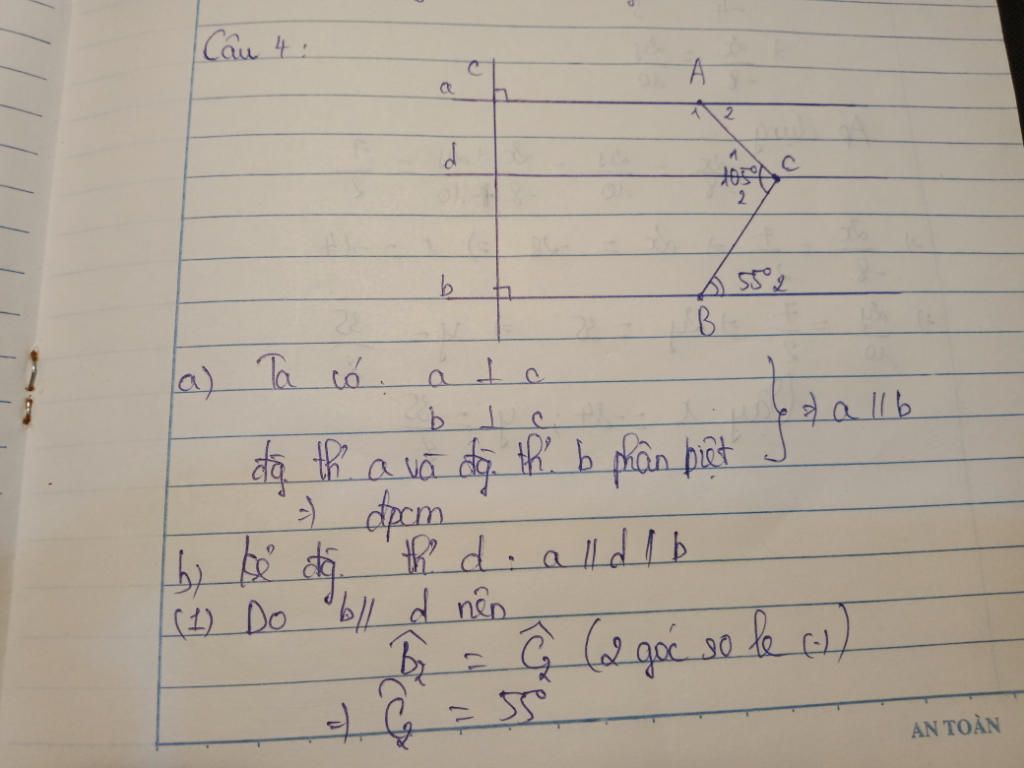 Câu 4:
c
A
a
1 2
d
1
C
105°
2
b
55° 2
B
a) Ta có: a ⊥ c
b ⊥ c
⇒ a // b
đg. th̉. a và đg. th̉. b phân biệt
⇒ đpcm
b) Kẻ đg. th̉ d : a // d // b
(1) Do b // d nên
B̂₂ = Ĉ₂ (2 góc so le (-))
⇒ Ĉ₂ = 55°
AN TOÀN